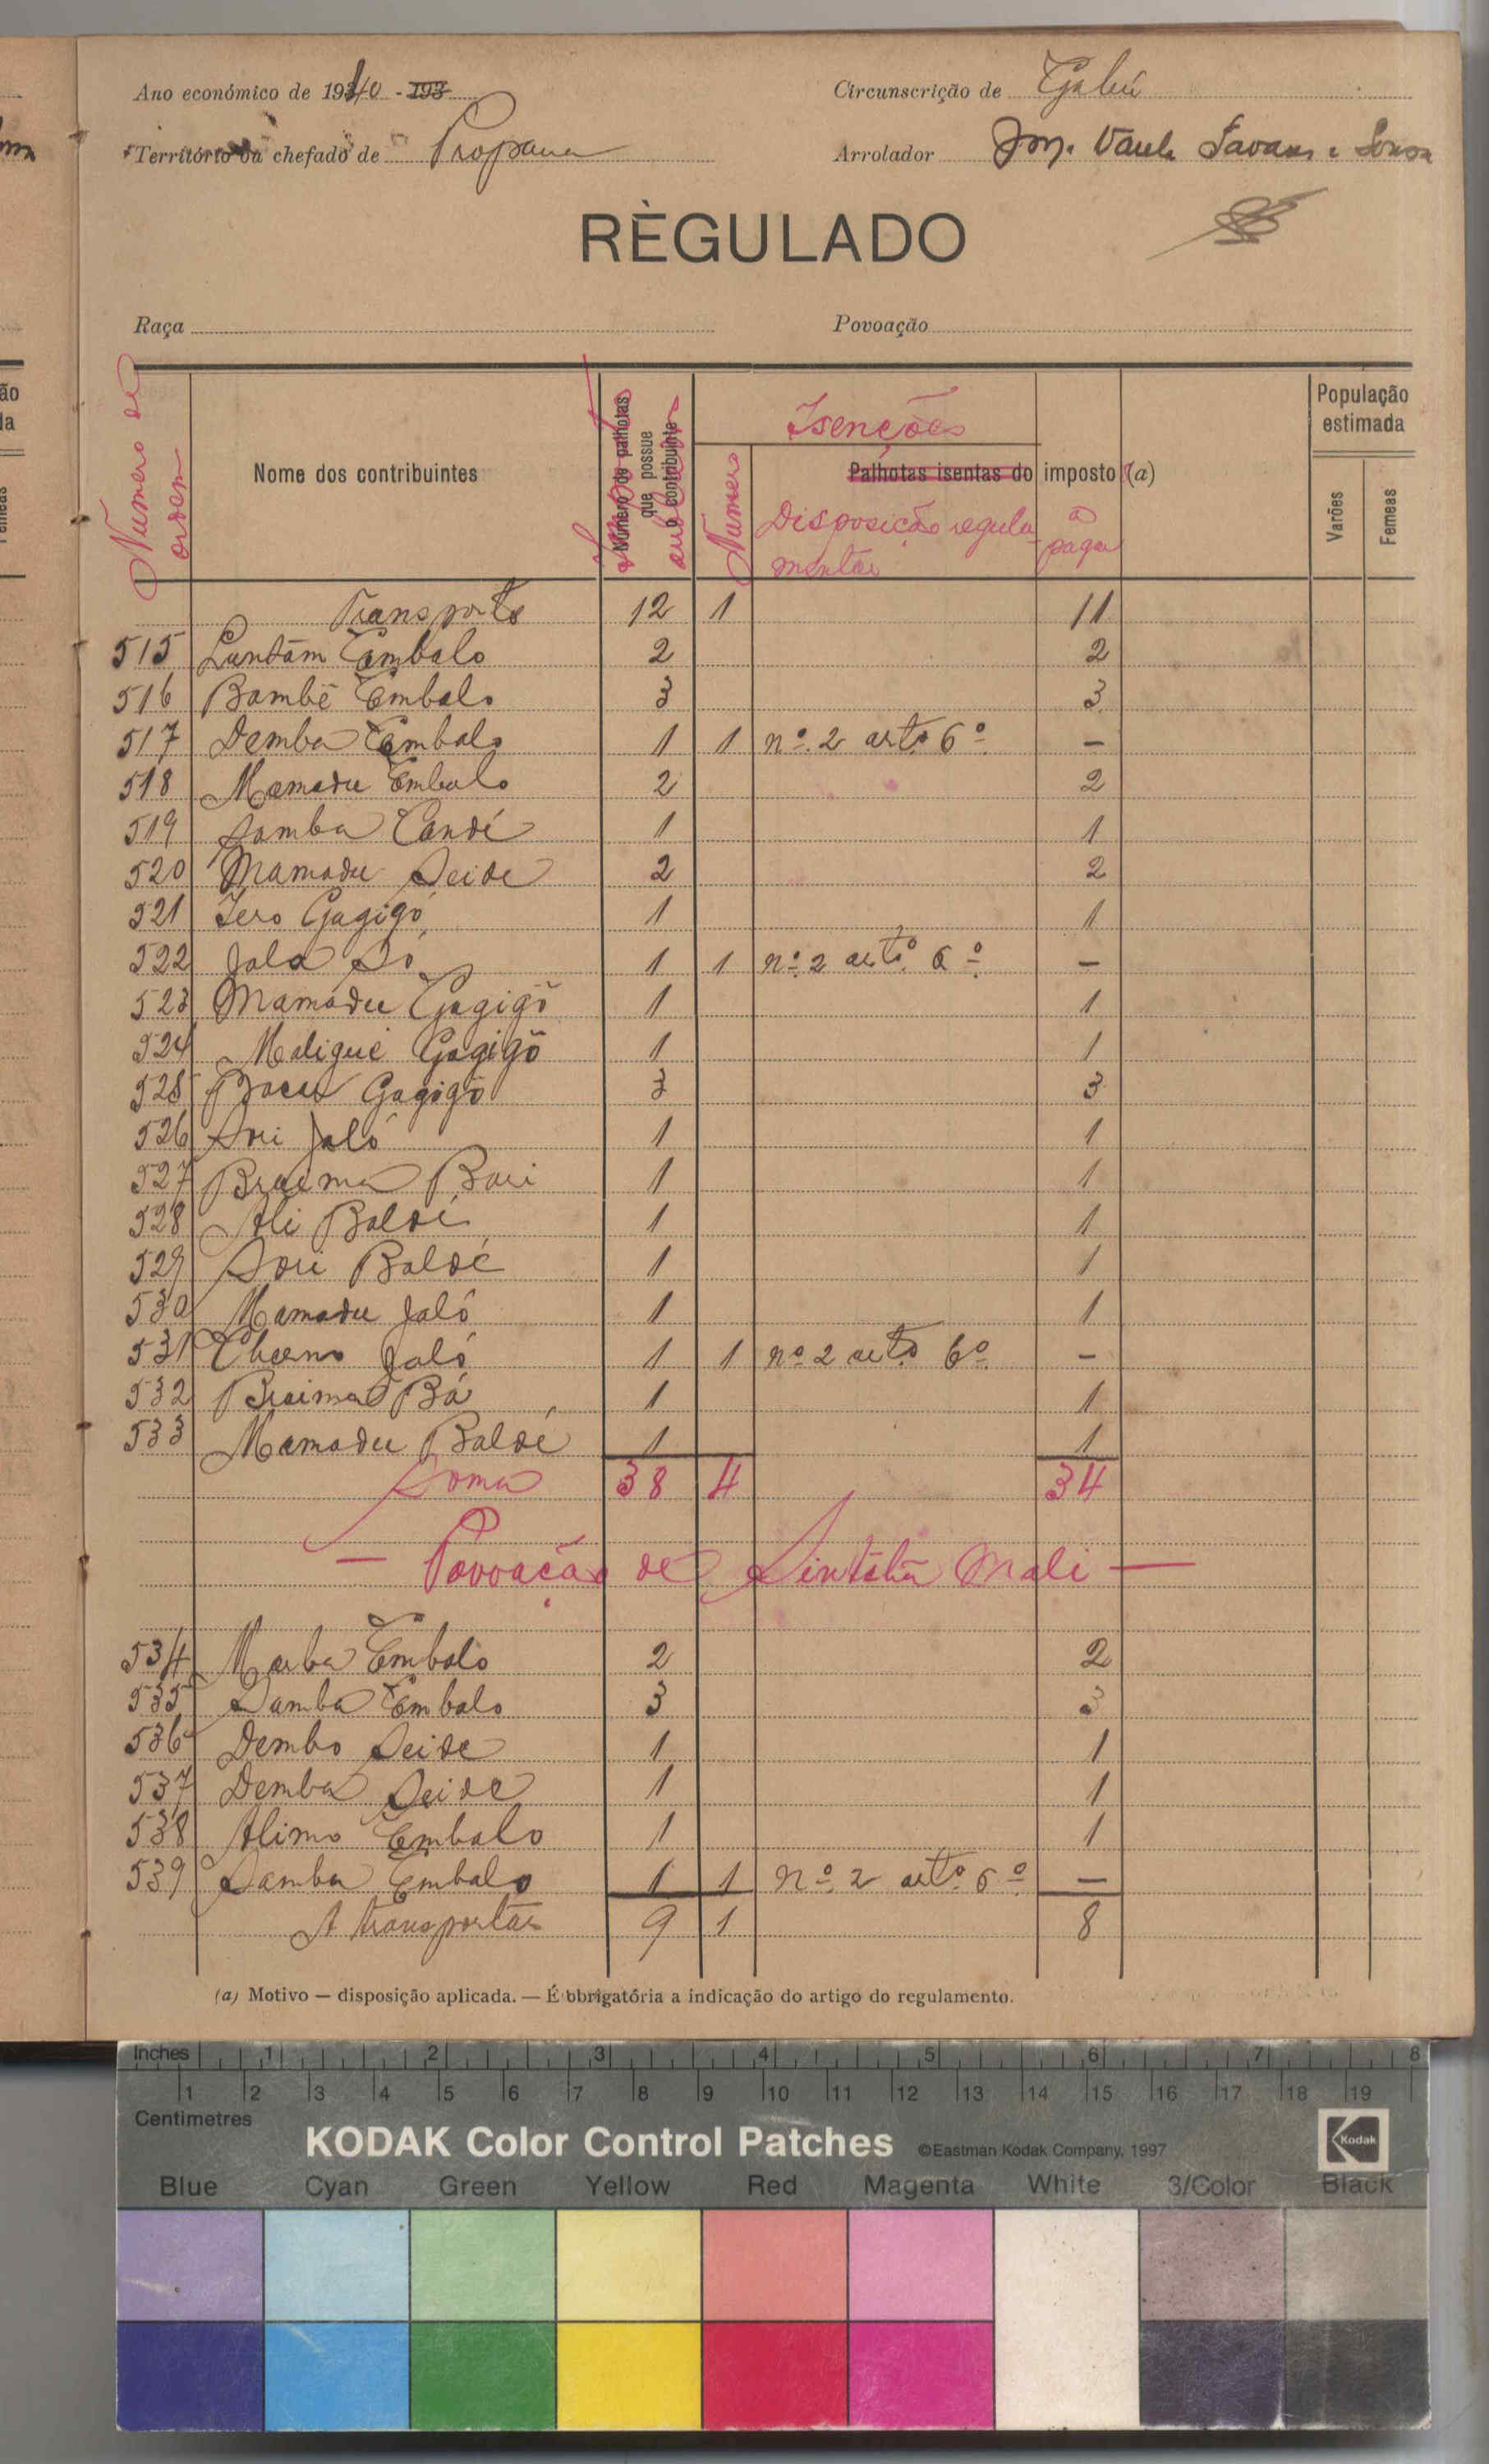 Ano económico de 1940 - 193
Circunscrição de Gabú
Território ou chefado de Propana
Arrolador Tavares e Sousa
RÈGULADO
Raça
Povoação
Número de ordem
Nome dos contribuintes
Número de palhotas que possue o contribuinte
Isenções
Número
Palhotas isentas do imposto (a)
Disposição regulamentar
a pagar
População estimada
Varões
Femeas
Transporte 12 1 11
515 Lundam Embalo 2 2
516 Bambé Embalo 3 3
517 Demba Embalo 1 1 nº 2 artº 6º —
518 Mamadu Embalo 2 2
519 Samba Candé 1 1
520 Mamadu Seide 2 2
521 Iero Gagigó 1 1
522 Jala Só 1 1 nº 2 artº 6º —
523 Mamadu Gagigó 1 1
524 Maligué Gagigó 1 1
525 Gagigó 3 3
526 Sori Jaló 1 1
527 Braima Bari 1 1
528 Ali Baldé 1 1
529 Sori Baldé 1 1
530 Mamadu Jaló 1 1
531 Cherno Jaló 1 1 nº 2 artº 6º —
532 Braima Bá 1 1
533 Mamadu Baldé 1 1
Soma 38 4 34
— Povoação de Sintchã Mali —
534 Embalo 2 2
535 Samba Embalo 3 3
536 Dembo Seide 1 1
537 Demba Seide 1 1
538 Alimo Embalo 1 1
539 Samba Embalo 1 1 nº 2 artº 6º —
A transportar 9 1 8
(a) Motivo — disposição aplicada. — É obrigatória a indicação do artigo do regulamento.
Inches 1 2 3 4 5 6 7 8
1 2 3 4 5 6 7 8 9 10 11 12 13 14 15 16 17 18 19
Centimetres
KODAK Color Control Patches ©Eastman Kodak Company, 1997 Kodak
Blue Cyan Green Yellow Red Magenta White 3/Color Black